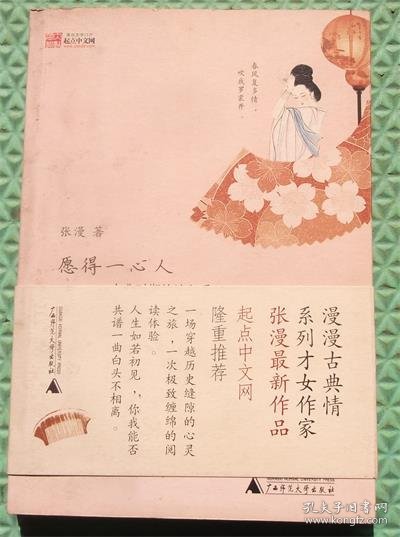 起点中文网
春风复多情，
吹我罗裳开。
张漫 著
愿得一心人
漫漫古典情
系列才女作家
张漫最新作品
起点中文网
隆重推荐
一场穿越历史缝隙的心灵
之旅，一次极致缠绵的阅
读体验。
人生如若初见，你我能否
共谱一曲白头不相离。
GUANGXI NORMAL UNIVERSITY PRESS
广西师范大学出版社
孔夫子旧书网
www.kongfz.com